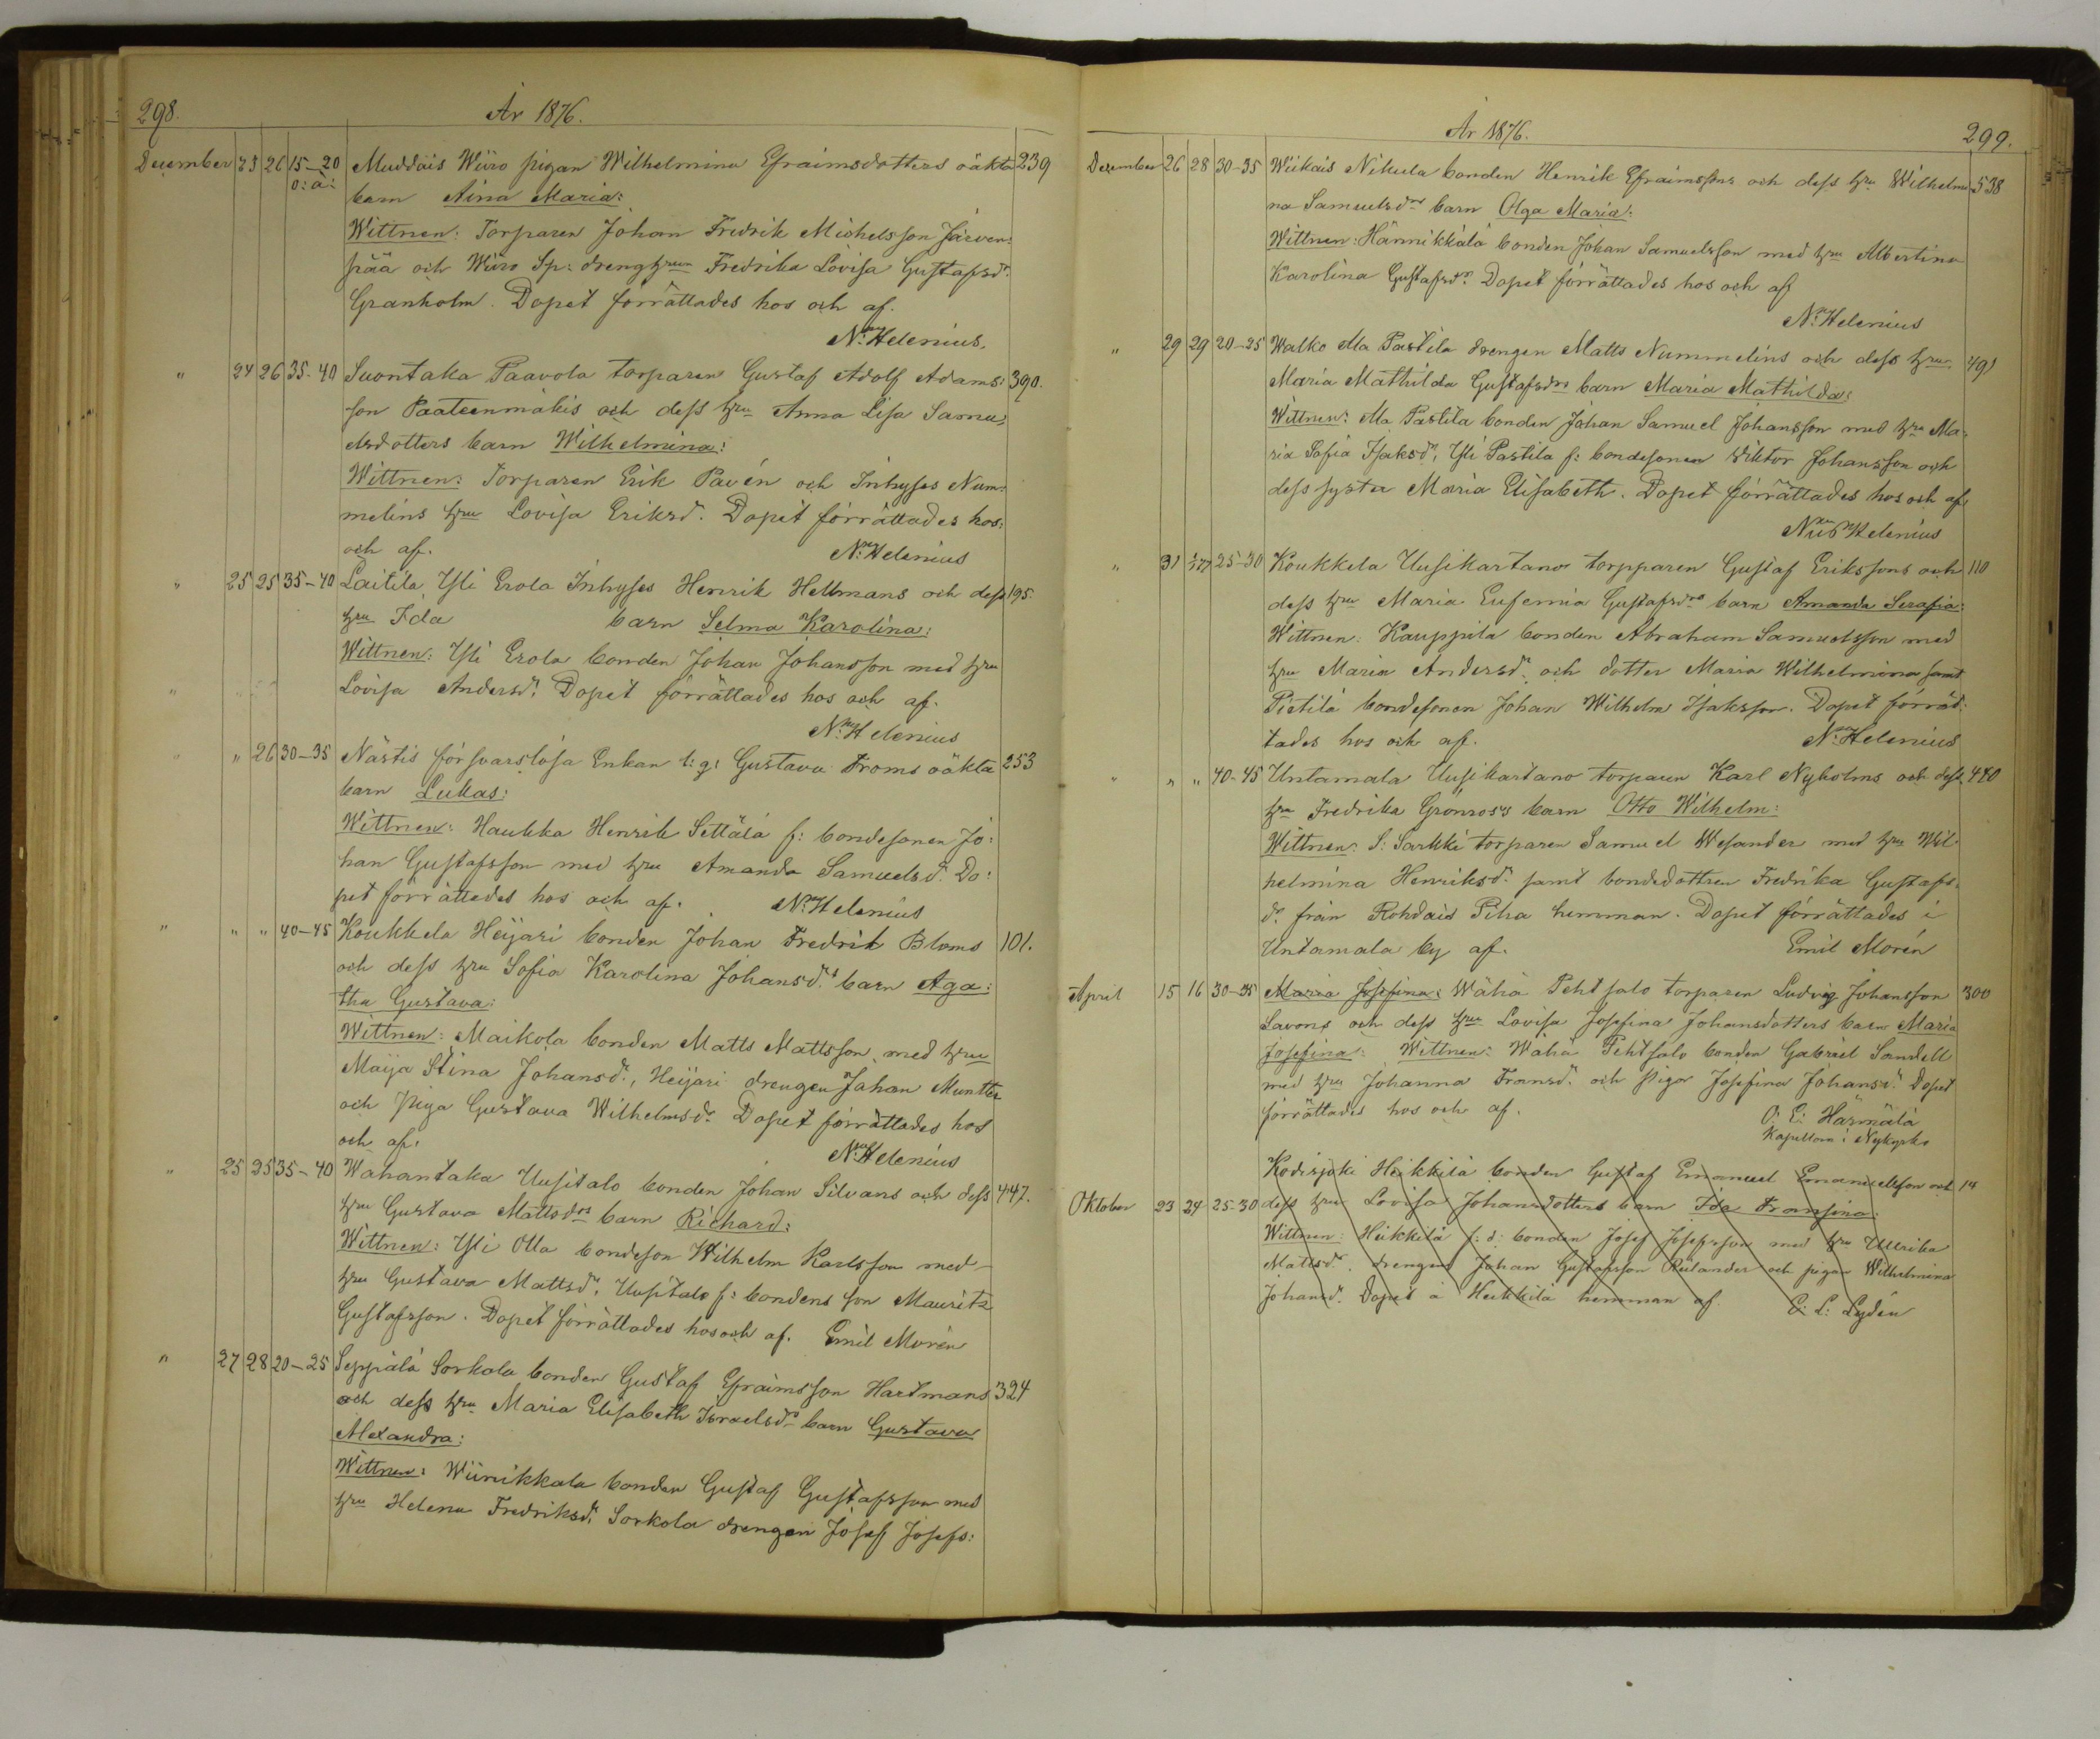 298.
År 1876.
December 23 26 15-20 Muddais Wiiro pigan Wilhelmina Efraimsdotters oäkta 239
o: ä: barn Aina Maria:
Wittnen: Torparen Johan Fredrik Michelsson Järven:
pää och Wiiro Sp: drenghru Fredrika Lovisa Gustafsdr
Granholm. Dopet förrättades hos och af.
N: Helenius.
" 24 26 35-40 Suontaka Paavola torparen Gustaf Adolf Adams: 390.
son Paateenmäkis och dess hru Anna Lisa Samu:
elsdotters barn Wilhelmina:
Wittnen: Torparen Erik Pavén och Inhyses Num:
melins hru Lovisa Eriksdr. Dopet förrättades hos:
och af. N: Helenius
" 25 25 35-40 Laitila, Yli Erola Inhyses Henrik Hellmans och dess 195.
hru Ida barn Selma Karolina:
Wittnen: Yli Erola bonden Johan Johansson med hru
Lovisa Andersdr. Dopet förrättades hos och af.
N: Helenius
" " 26 30-35 Nästis försvarslösa Enkan t: g: Gustava Froms oäkta 253
barn Lukas:
Wittnen: Haukka Henrik Settälä f: bondesonen Jo:
han Gustafsson med hru Amanda Samuelsdr. Do:
pet förrättades hos och af. N: Helenius
" " " 40-45 Koukkela Heijari bonden Johan Fredrik Bloms 101.
och dess hru Sofia Karolina Johansdrs barn Aga:
tha Gustava:
Wittnen: Maikola bonden Matts Mattsson, med hru
Maija Stina Johansdr., Heijari drengen Johan Muntter
och piga Gustava Wilhelmsdr. Dopet förrättades hos
och af. N: Helenius
" 25 25 35-40 Wahantaka Uusitalo bonden Johan Silvans och dess 447.
hru Gustava Mattsdrs barn Richard:
Wittnen: Yli Olla bondeson Wilhelm Karlsson med
hru Gustava Mattsdr. Uusitalo f: bondens son Mauritz
Gustafsson. Dopet förrättades hos och af. Emil Morén
" 27 28 20-25 Seppälä Sorkola bonden Gustaf Efraimsson Hartmans 324
och dess hru Maria Elisabeth Israelsdrs barn Gustava
Alexandra:
Wittnen: Wiinikkala bonden Gustaf Gustafsson med
hru Helena Fredriksdr. Sorkola drengen Josef Josefs:
År 1876.
299.
December 26 28 30-35 Wiikais Nikula bonden Henrik Efraimssons och dess hru Wilhelmi: 538
na Samuelsdrs barn Olga Maria:
Wittnen: Hännikkälä bonden Johan Samuelsson med hru Albertina
Karolina Gustafsdr. Dopet förrättades hos och af
N: Helenius
" 29 29 20-25 Walko Ala Pastila drengen Matts Nummelins och dess hru 491
Maria Mathilda Gustafsdrs barn Maria Mathilda:
Wittnen: Ala Pastila bonden Johan Samuel Johansson med hru Ma:
ria Sofia Isaksdr, Yli Pastila f: bondesonen Viktor Johansson och
dess syster Maria Elisabeth. Dopet förrättades hos och af.
Helenius
" 31 25-30 Koukkela Uusikartano torpparen Gustaf Erikssons och 110
dess hru Maria Eufemia Gustafsdrs barn Amanda Serafia:
Wittnen: Kauppila bonden Abraham Samuelsson med
hru Maria Andersdr. och dotter Maria Wilhelmina samt
Pietilä bondesonen Johan Wilhelm Isaksson. Dopet förrät:
tades hos och af. N: Helenius
" " " 40-45 Untamala Uusikartano torparen Karl Nyholms och dess 480
hru Fredrika Grönros's barn Otto Wilhelm:
Wittnen: S: Sarkki torparen Samuel Wesander med hru Wil:
helmina Henriksdr. samt bondedottren Fredrika Gustafs:
dr. från Rohdais Piha hemman. Dopet förrättades i
Untamala by af. Emil Morén
April 15 16 30-35 Maria Josefina: Wähä Pehtsalo torparen Ludvig Johansson 300
Savons och dess hru Lovisa Josefina Johansdotters barn Maria
Josefina: Wittnen: Wähä Pehtsalo bonden Gabriel Sandell
med hru Johanna Fransdr. och piga Josefina Johansdr. Dopet
förrättades hos och af. O: E: Härmälä
Kapellan i Nykyrko
Kodisjoki Heikkilä bonden Gustaf Emanuel Emanuelsson och 14
Oktober 23 24 25-30 dess hru Lovisa Johansdotters barn Ida Fransina:
Wittnen: Heikkilä f: d: bonden Josef Josefsson med hru Ulrika
Mattsdr. drengen Johan Gustafsson Relander och pigan Wilhelmina
Johansdr. Dopet å Heikkilä hemman af. C: L: Lydén